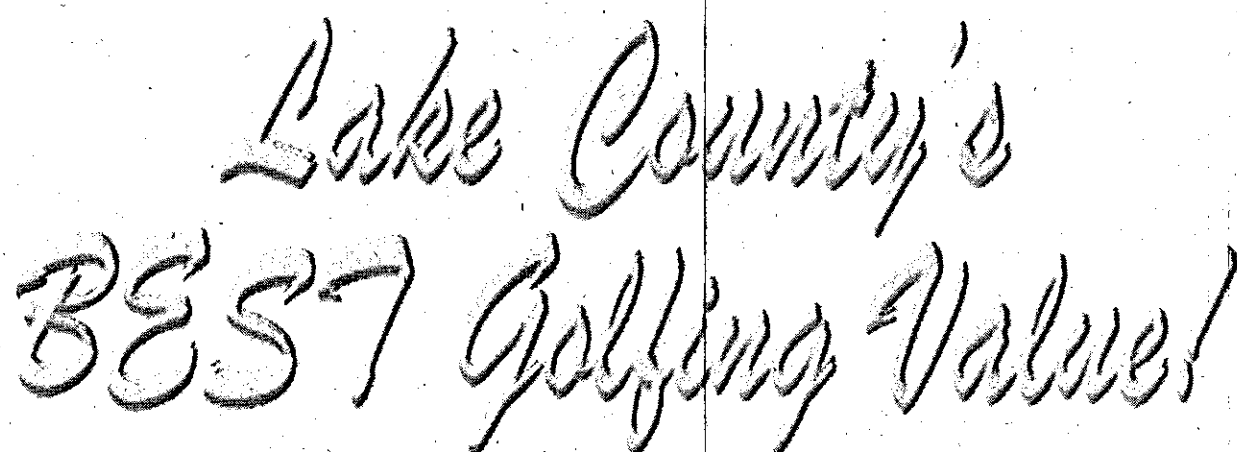 Lake County's
BEST Golfing Value!